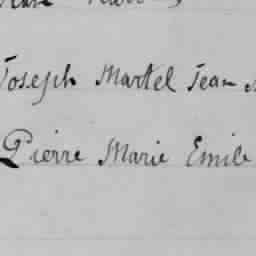 Joseph Martel Jean
Pierre Marie Emile